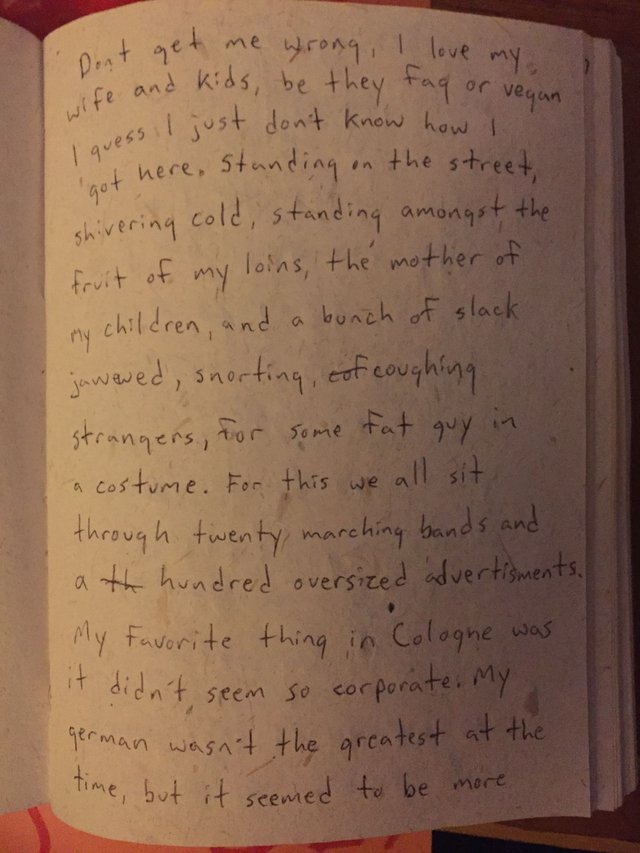 Dont get me wrong, I love my
wife and kids, be they fag or vegan
I guess I just don't know how I
got here. Standing on the street,
shivering cold, standing amongst the
fruit of my loins, the mother of
my children, and a bunch of slack
jawewed, snorting, cof coughing
strangers, for some fat guy in
a costume. For this we all sit
through twenty marching bands and
a th hundred oversized advertisments.
My favorite thing in Cologne was
it didn't seem so corporate. My
german wasn't the greatest at the
time, but it seemed to be more